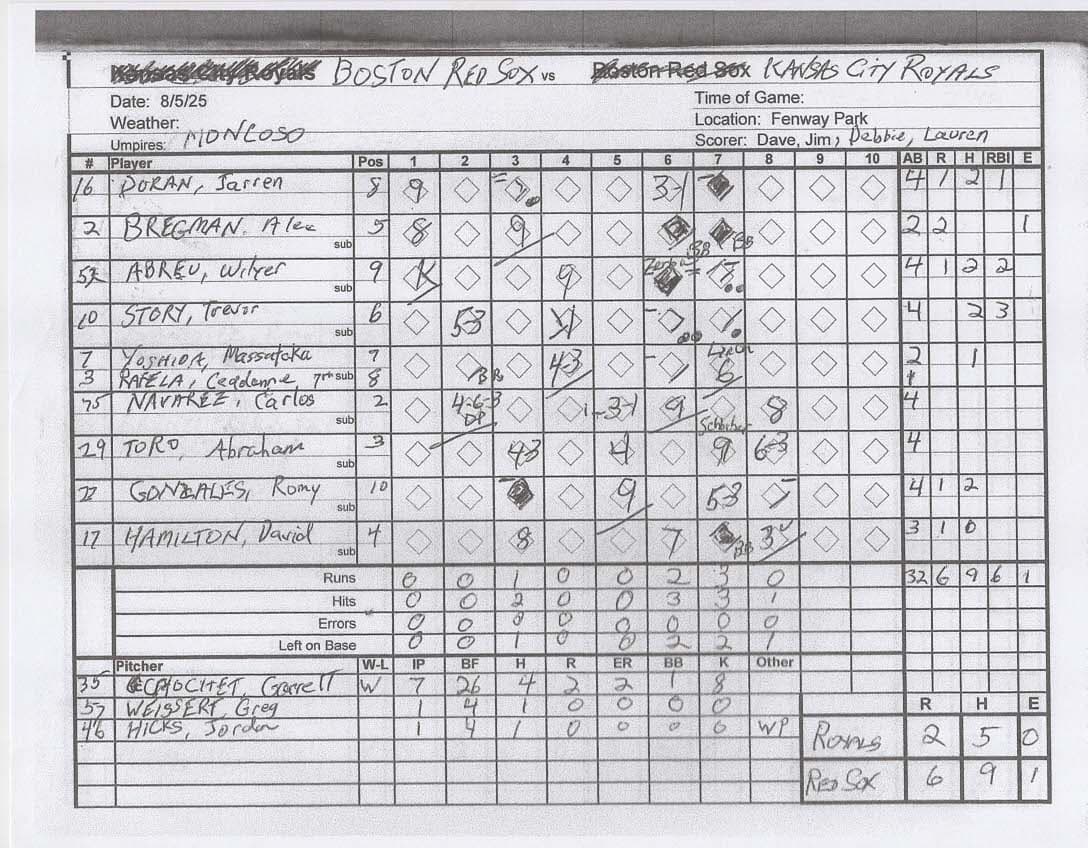 BOSTON RED SOX vs KANSAS CITY ROYALS
Date: 8/5/25 Time of Game:
Weather: Location: Fenway Park
Umpires: MONCOSO Scorer: Dave, Jim, Debbie, Lauren
# Player Pos 1 2 3 4 5 6 7 8 9 10 AB R H RBI E
16 DURAN, Jarren 8 9 3-1 4 1 2 1
2 BREGMAN, Alex 5 8 9 BB BB 2 2 1
sub
52 ABREU, Wilyer 9 K 9 4 1 2 2
sub
10 STORY, Trevor 6 5-3 4 2 3
sub
7 YOSHIDA, Massatoka 7 BB 4-3 2 1
3 RAFELA, Ceddanne, 7th sub 8 6
75 NAVAREZ, Carlos 2 4-6-3 DP 1-3-1 9 8 4
sub
29 TORO, Abraham 3 4-3 4 9 6-3 4
sub
22 GONZALES, Romy 10 9 5-3 4 1 2
sub
17 HAMILTON, David 4 8 7 BB 3U 3 1 0
sub
Runs 0 0 1 0 0 2 3 0 32 6 9 6 1
Hits 0 0 2 0 0 3 3 1
Errors 0 0 0 0 0 0 0 0
Left on Base 0 0 1 0 0 2 2 1
Pitcher W-L IP BF H R ER BB K Other
35 CROCHET, Garrett W 7 26 4 2 2 1 8
57 WEISSERT, Greg 1 4 1 0 0 0 0
46 HICKS, Jordan 1 4 1 0 0 0 0 WP
R H E
ROYALS 2 5 0
RED SOX 6 9 1